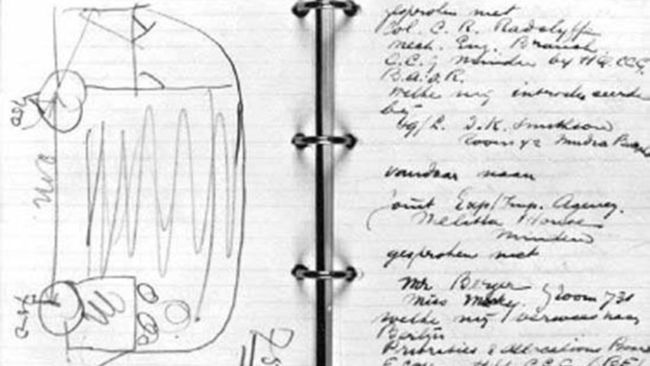 750
750
gesproken met
Col. C. R. Radclyffe
Mech. Eng. Branch
C.C.G Minden by HQ. CCG
B.A.O.R.
welke mij introduceerde
bij
Room 42 Mudra
vandaar naar
Joint Exp/Imp. Agency.
Melitta House
Minden
gesproken met
Mr Berger
Miss Room 731
welke mij verwees naar
Berlijn
Priorities & Allocations Board
C.C.G (BE)